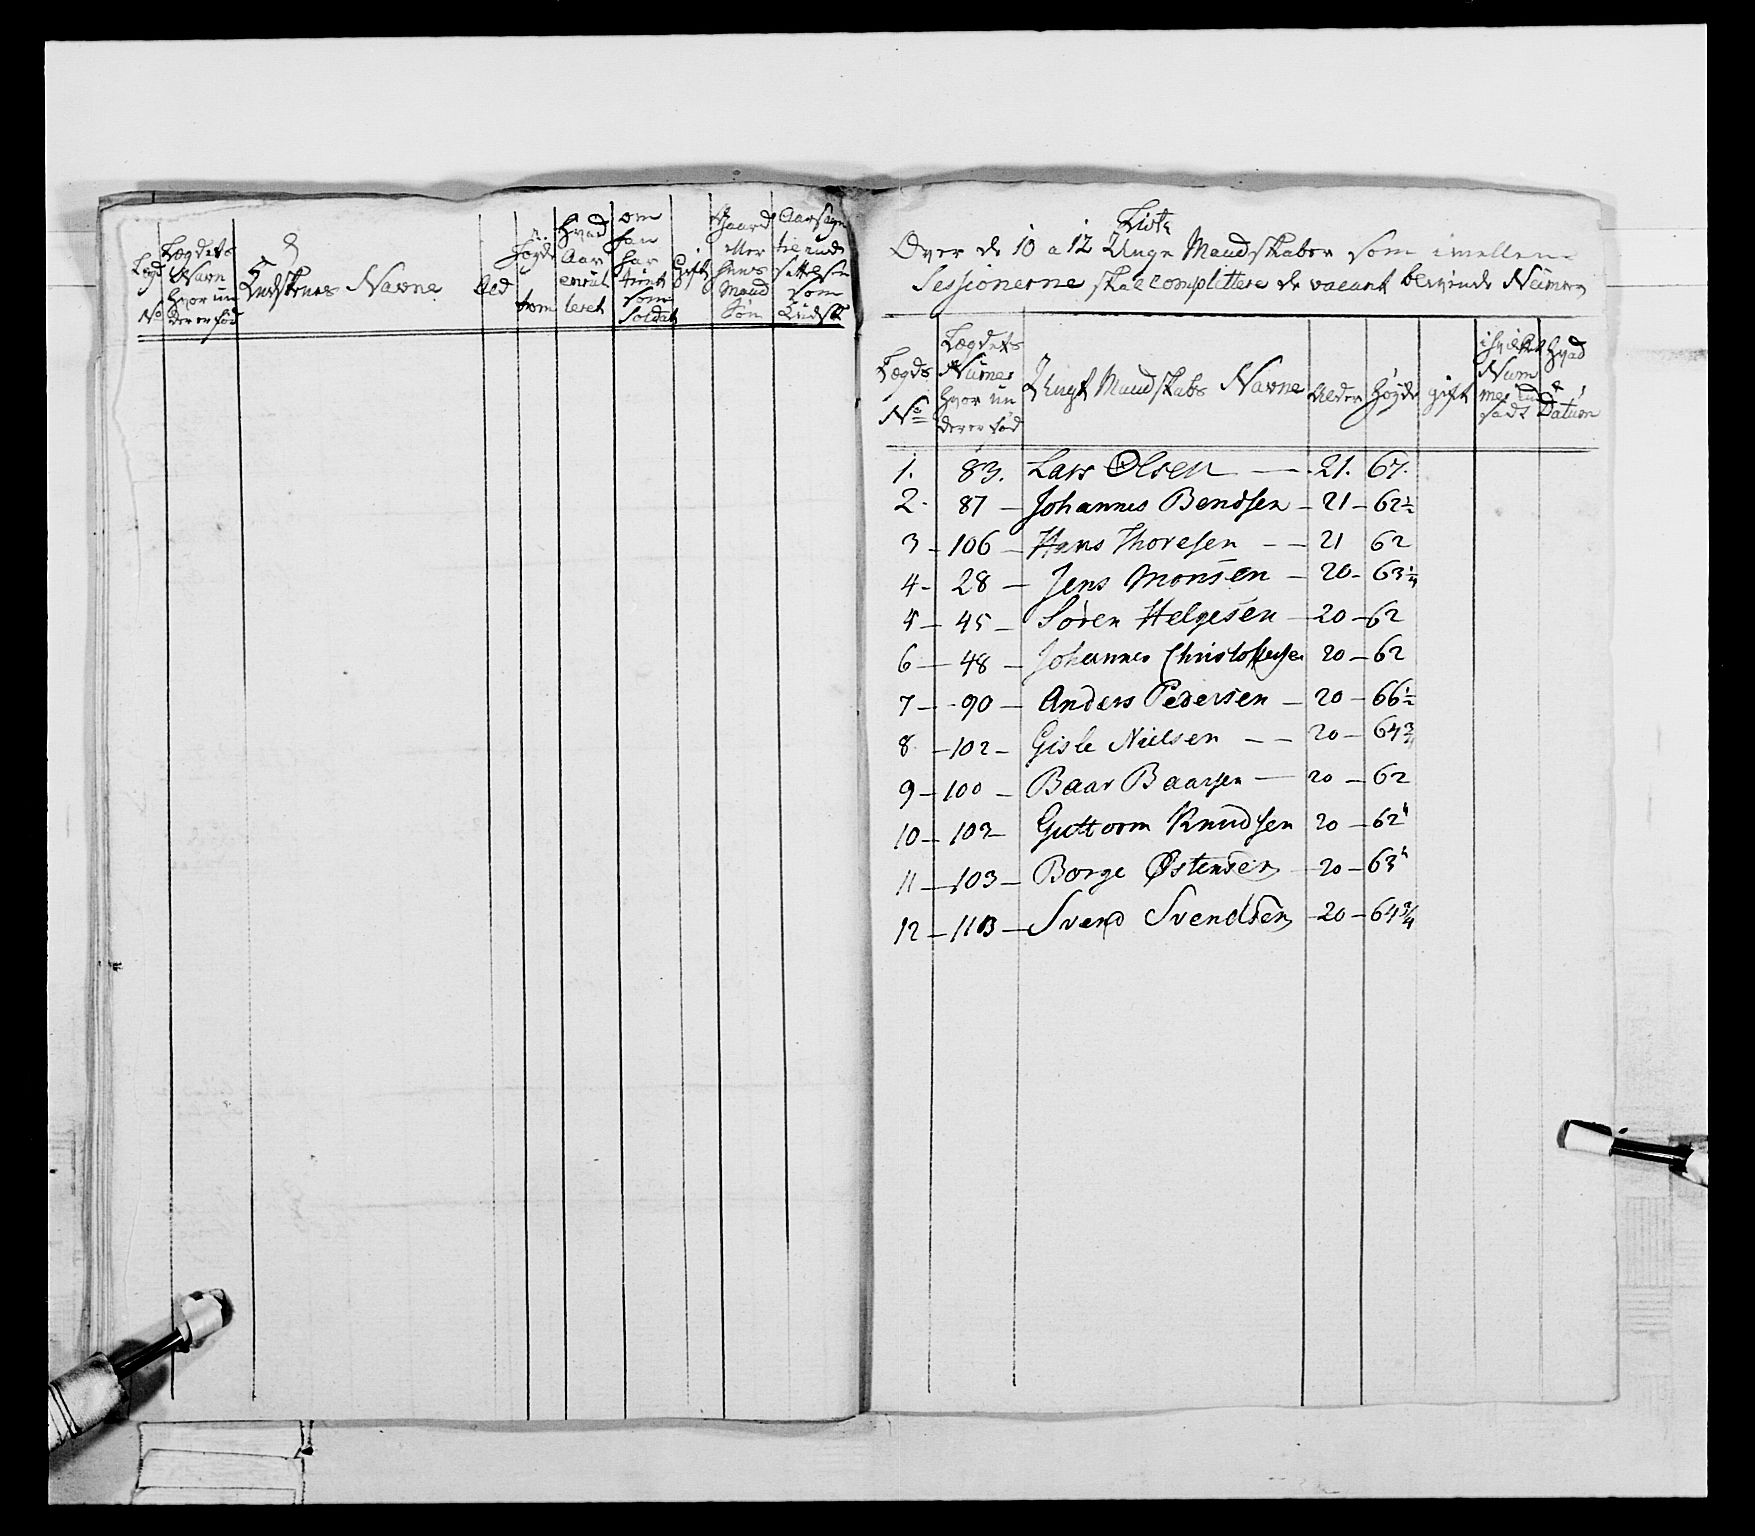 Lægd
No
Lægdets
Navn
hvor un
der er fød
Landskens Navne
Ald
Høyde
tom
Hvad
Aar
enrul
leret
om
han
har
tient
som
Soldat
Gift
Gaard
eller
huus
Mand
Søn
som
Landsk
Liste
Over de 10 a 12 Unge Mandskaber som imellem
Sessionerne skal complettere de vacant blivende Numere
Lægds
No
Lægdets
Numer
hvor un
der er fød
Ungt Mandskabs Navne
Alder
Høyde
gift
i hvilket
Num
mer ind
sadt
Hvad
Datum
1. 83. Lars Olsen — 21. 67.
2. 87 — Johannes Bendsen — 21 — 62½
3 — 106 — Hans Thoresen — — 21 62
4 — 28 — Jens Monsen — 20 — 63¼
5 — 45 — Søren Helgesen — 20 — 62
6 — 48 — Johannes Christoffersen 20 — 62
7 — 90 — Anders Pedersen — 20 — 66½
8 — 102 — Gisle Nielsen — — 20 — 64¾
9 — 100 — Baar Baarsen — 20 — 62
10 — 102 — Guttorm Knudsen 20 — 62
11 — 103 — Borge Østensen — 20 — 63
12 — 113 — Svend Svendsen — 20 — 64¾